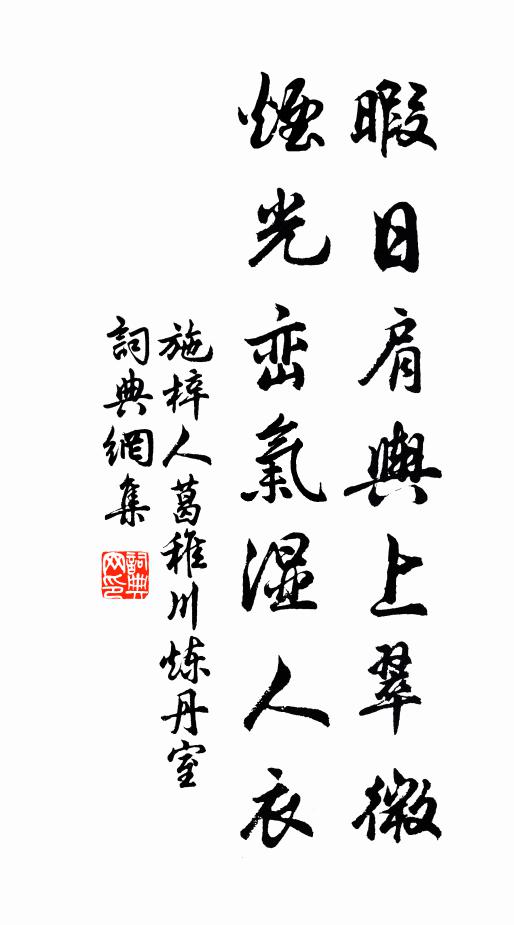 暇日肩輿上翠微
煙光巒氣湿人衣
施梓人葛稚川炼丹室
詞典網集
詞典网印